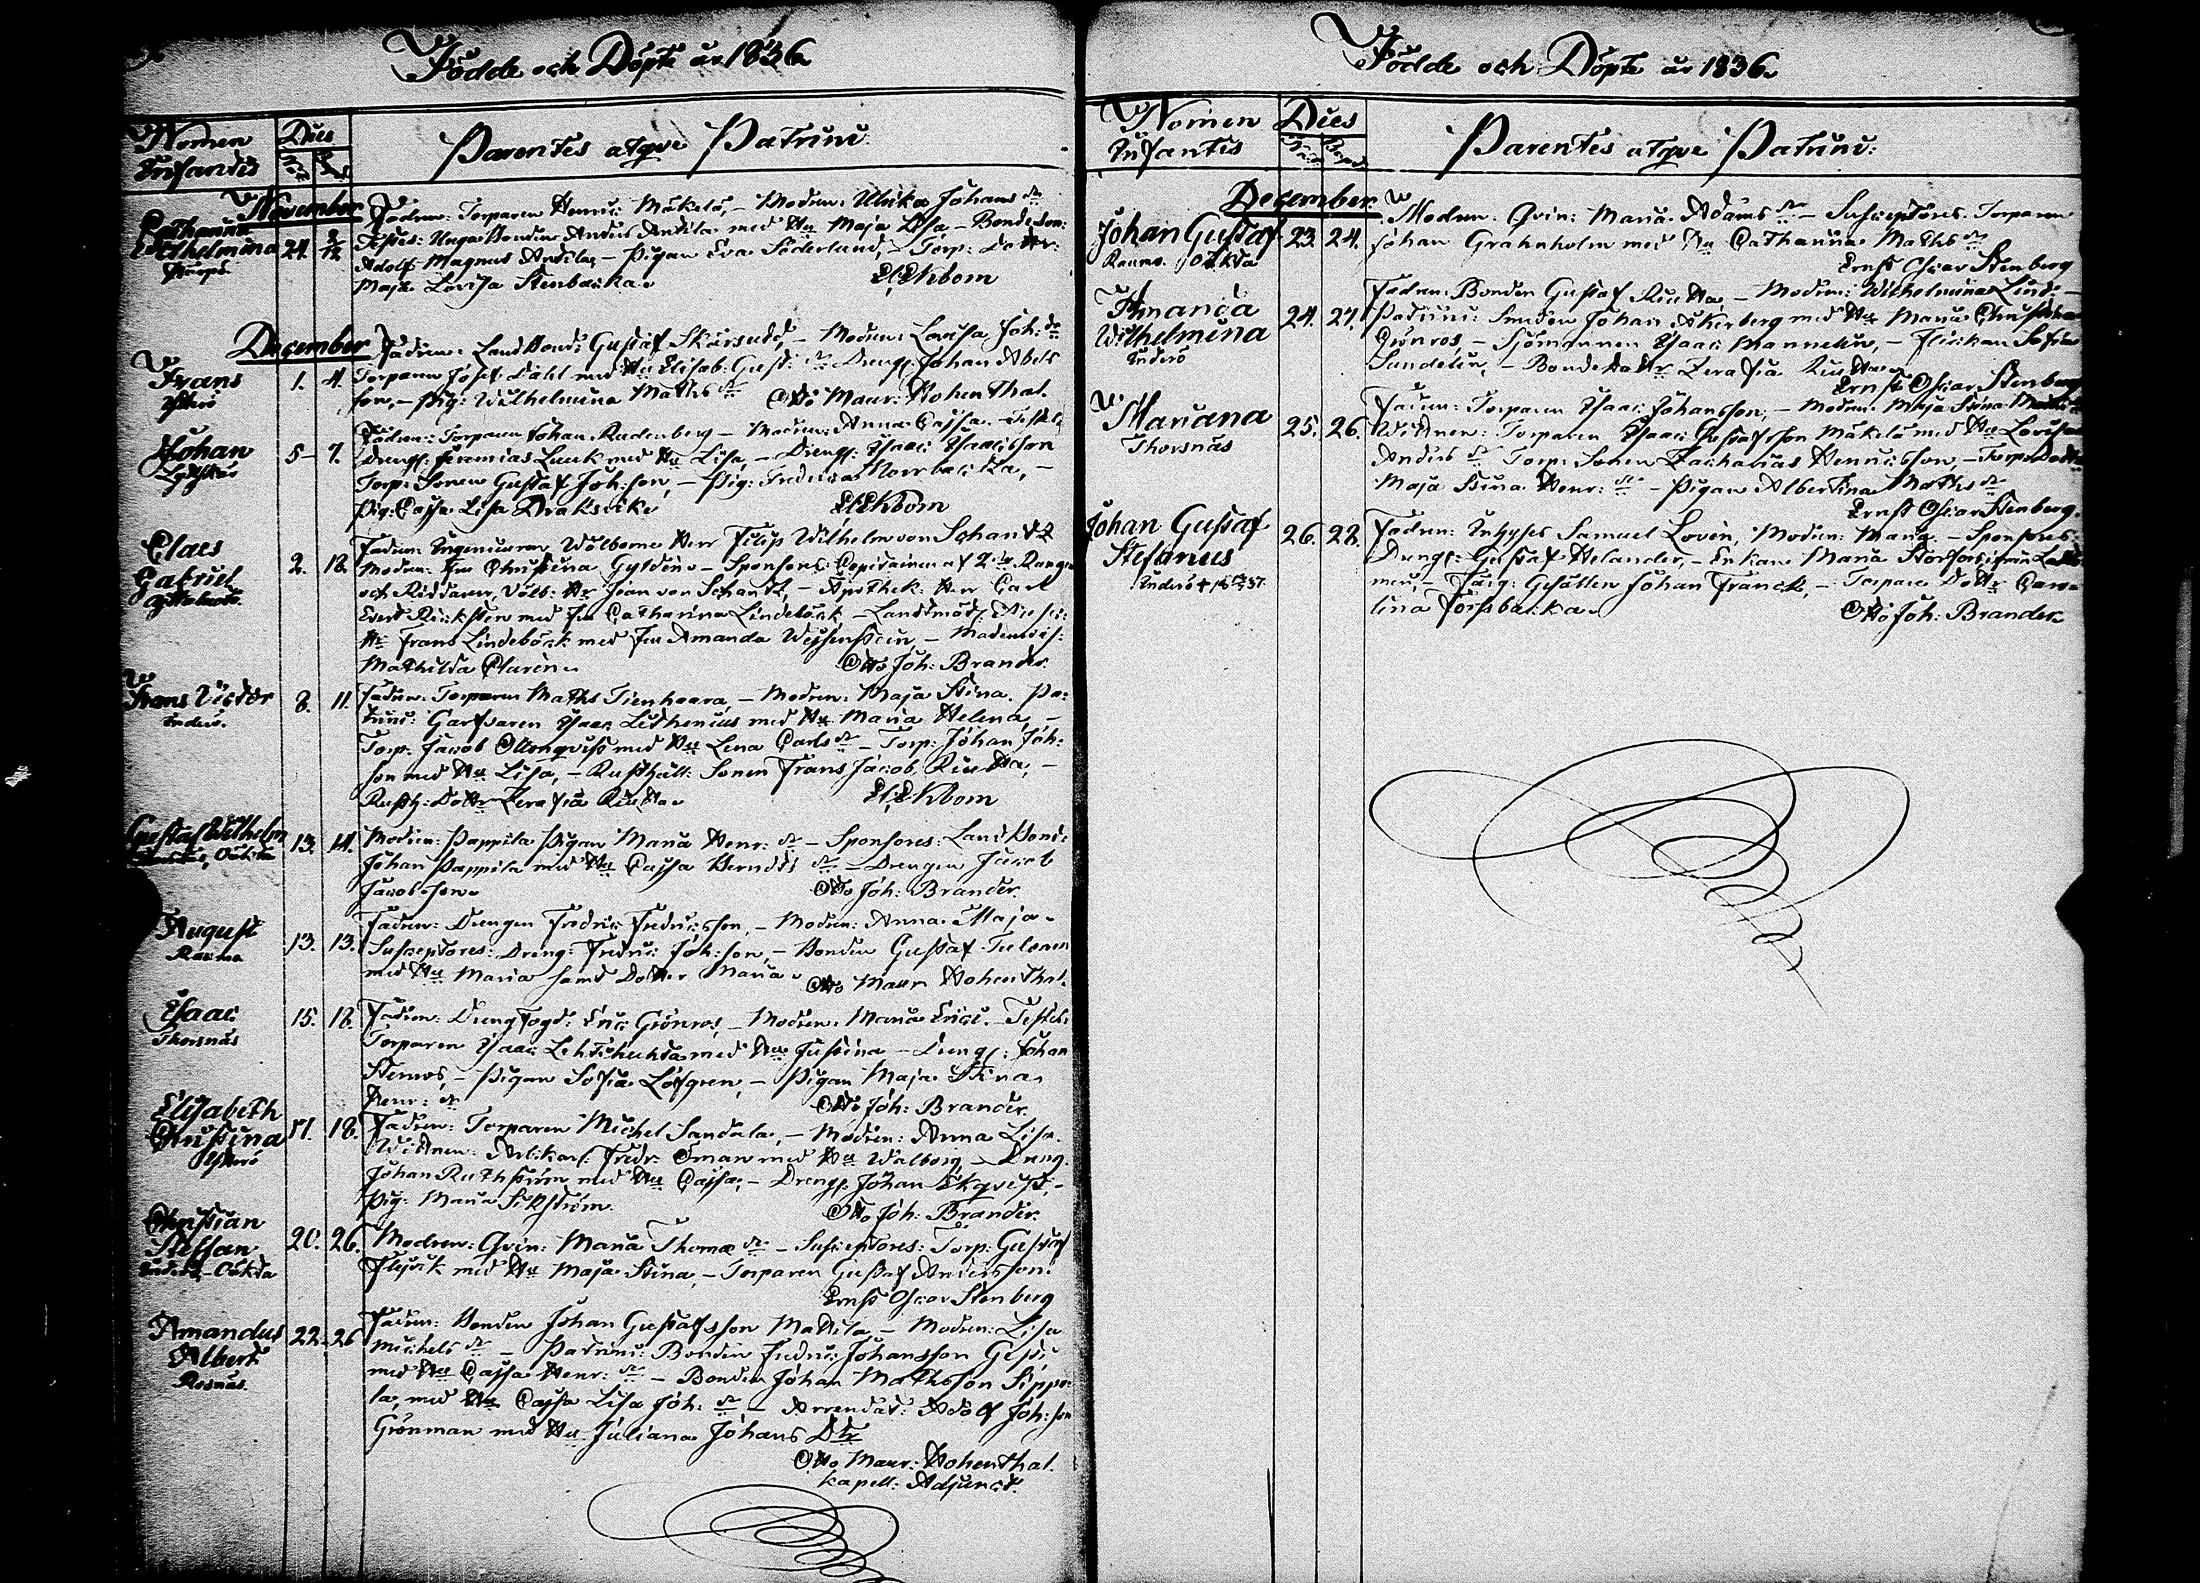 Födde och Döpte år 1836
Nomen
Infantis
Dies
Parentes atqve Patrini
November
Catharina
Wilhelmina
21. 2/12
Fadren: Torparen Henric Mäkelä, – Modren: Ulrika Johans dr
Testes: Unga Bonden Anders Anttila med Hu Maja Lisa, – Bondeson:
Adolf Magnus Anttila, – Pigan Eva Söderlund, Torp: Dotter:
Maja Lovisa Stenbacka.
El: Ekbom
December
Frans
1. 4.
Fadren: Landbond: Gustaf Skärsudd, – Modren: Lovisa Joh: dr
Torparen Josef Dahl med Hu Elisab: Gust: dr Dreng: Johan Abels
son, – Pig: Wilhelmina Maths dr Otto Maur: Hohenthal.
Johan
5 7.
Fadren: Torparen Johan Rudenberg – Modren: Anna Cajsa. Testes
Dreng: Jeremias Lauk med Hu Lisa, – Dreng: Isaac Isaacsson
Torp: Sonen Gustaf Joh:son, – Pig: Fredrica Norrbacka, –
Pig: Cajsa Lisa Draksvik
El: Ekbom
Claes
Gabriel
2. 18.
Fadren: Ingenieuren Wälborne Herr Filip Wilhelm von Schantz
Modren: Fru Christina Gyldén – Sponsores: Capitainen af 2dra Rangen
och Riddaren, Välb: Hr Jean von Schantz, – Apothek: Herr Carl
Evert Rickstén med Fru Catharina Lindebäck, – Landtmät:
Hr Frans Lindebäck med Fru Amanda Weissenstein, – Mademois:
Mathilda Clarén
Otto Joh: Brander.
Frans Victor
8. 11.
Fadren: Torparen Maths Tienhaara, – Modren: Maja Stina. Pa-
trini: Garfvaren Isaac Lithenius med Hu Maria Helena, –
Torp: Jacob Ollonqvist med Hu Lena Carls dr – Torp: Johan Joh:
son med Hu Lisa, – Rusthåll: Sonen Frans Jacob Riutta, –
Rusth: Dotter Serafia Riutta.
El: Ekbom
Gustaf Wilhelm
13. 14.
Modren: Pappila Pigan Maria Henr: dr – Sponsores: Landbond:
Johan Pappila med Hu Cajsa Berndts dr – Drengen Jacob
Jacobsson.
Otto Joh: Brander.
August
Rauma
13. 13.
Fadren: Drengen Fredric Fredricsson, – Modren: Anna Maja.
Susceptores: Dreng: Fredric Joh:son, – Bonden Gustaf Tulonen
med Hu Maria samt Dotter Maria
Otto Maur: Hohenthal.
Isaac
Thorsnäs
15. 18.
Fadren: Drengfogd: Eric Grönros, – Modren: Maria Erici. – Testes:
Torparen Isaac Lehtihuhta med Hu Justina – Dreng: Johan
Stenros, – Pigan Sofia Löfgren, – Pigan Maja Stina
Henr: dr
Otto Joh: Brander.
Elisabeth
Christina
Ytterö
17. 18.
Fadren: Torparen Michel Sandala, – Modren: Anna Lisa.
Wittnen: Artikarl: Fredr: Öman med Hu Walborg, – Dreng:
Johan Ruthström med Hu Cajsa, – Dreng: Johan Ekqvist, –
Pig: Maria Sikström.
Otto Joh: Brander.
Christian
Steffan
Inderö – Oäkta
20. 26.
Modren: Qvin: Maria Thomæ dr – Susceptores: Torp: Gustaf
Flisvik med Hu Maja Stina, – Torparen Gustaf Andersson.
Ernst Oscar Stenberg
Amandus
Albert
Rosnäs
22. 26
Fadren: Bonden Johan Gustafsson Mattila – Modren: Lisa
Michels dr – Patrini: Bonden Fredric Johansson
med Hu Cajsa Henr: dr – Bonden Johan Mathsson Sippo-
la, med Hu Cajsa Lisa Joh: dr – Arrendat: Adolf Joh:son
Grönman med Hu Juliana Johans Dtr
Otto Maur: Hohenthal.
Kapell: Adjunct.
Födde och Döpte år 1836.
Nomen
Infantis
Dies
Parentes atqve Patrini:
December
Johan Gustaf
Raumo. Oäkta
23. 24.
Modren: Qvin: Maria Adams dr – Susceptores. Torparen
Johan Grahnholm med Hu Catharina Maths dr
Ernst Oscar Stenberg
Amanda
Wilhelmina
Inderö
24. 27.
Fadren: Bonden Gustaf Riutta – Modren: Wilhelmina Lind: –
Patrini: Smeden Johan Åkerberg med Hu Maria Christina
Grönros, – Sjömannen Isaac Mannelin, – Flickan Sofia
Sandelin, – Bondedotter Serafia Riutta
Ernst Oscar Stenberg
Mariana
Thorsnäs
25. 26.
Fadren: Torparen Isaac Johansson, – Modren: Maja Stina
Wittnen: Torparen Isaac Gustafsson Mäkelä med Hu Lovisa
Anders dr Torp: Sonen Zacharias Henricsson, – Torp: Dotter
Maja Stina Henr: dr – Pigan Albertina Maths dr
Ernst Oscar Stenberg.
Johan Gustaf
Stefanus
26. 28.
Fadren: Inhyses Samuel Lovén, Modren: Maria – Sponsores:
Drengs: Gustaf Helander, – Enkan Maria Storfors från
men, – Färg: Gesällen Johan Franck, – Torpare Dotter Caro-
lina Forsbacka.
Otto Joh: Brander